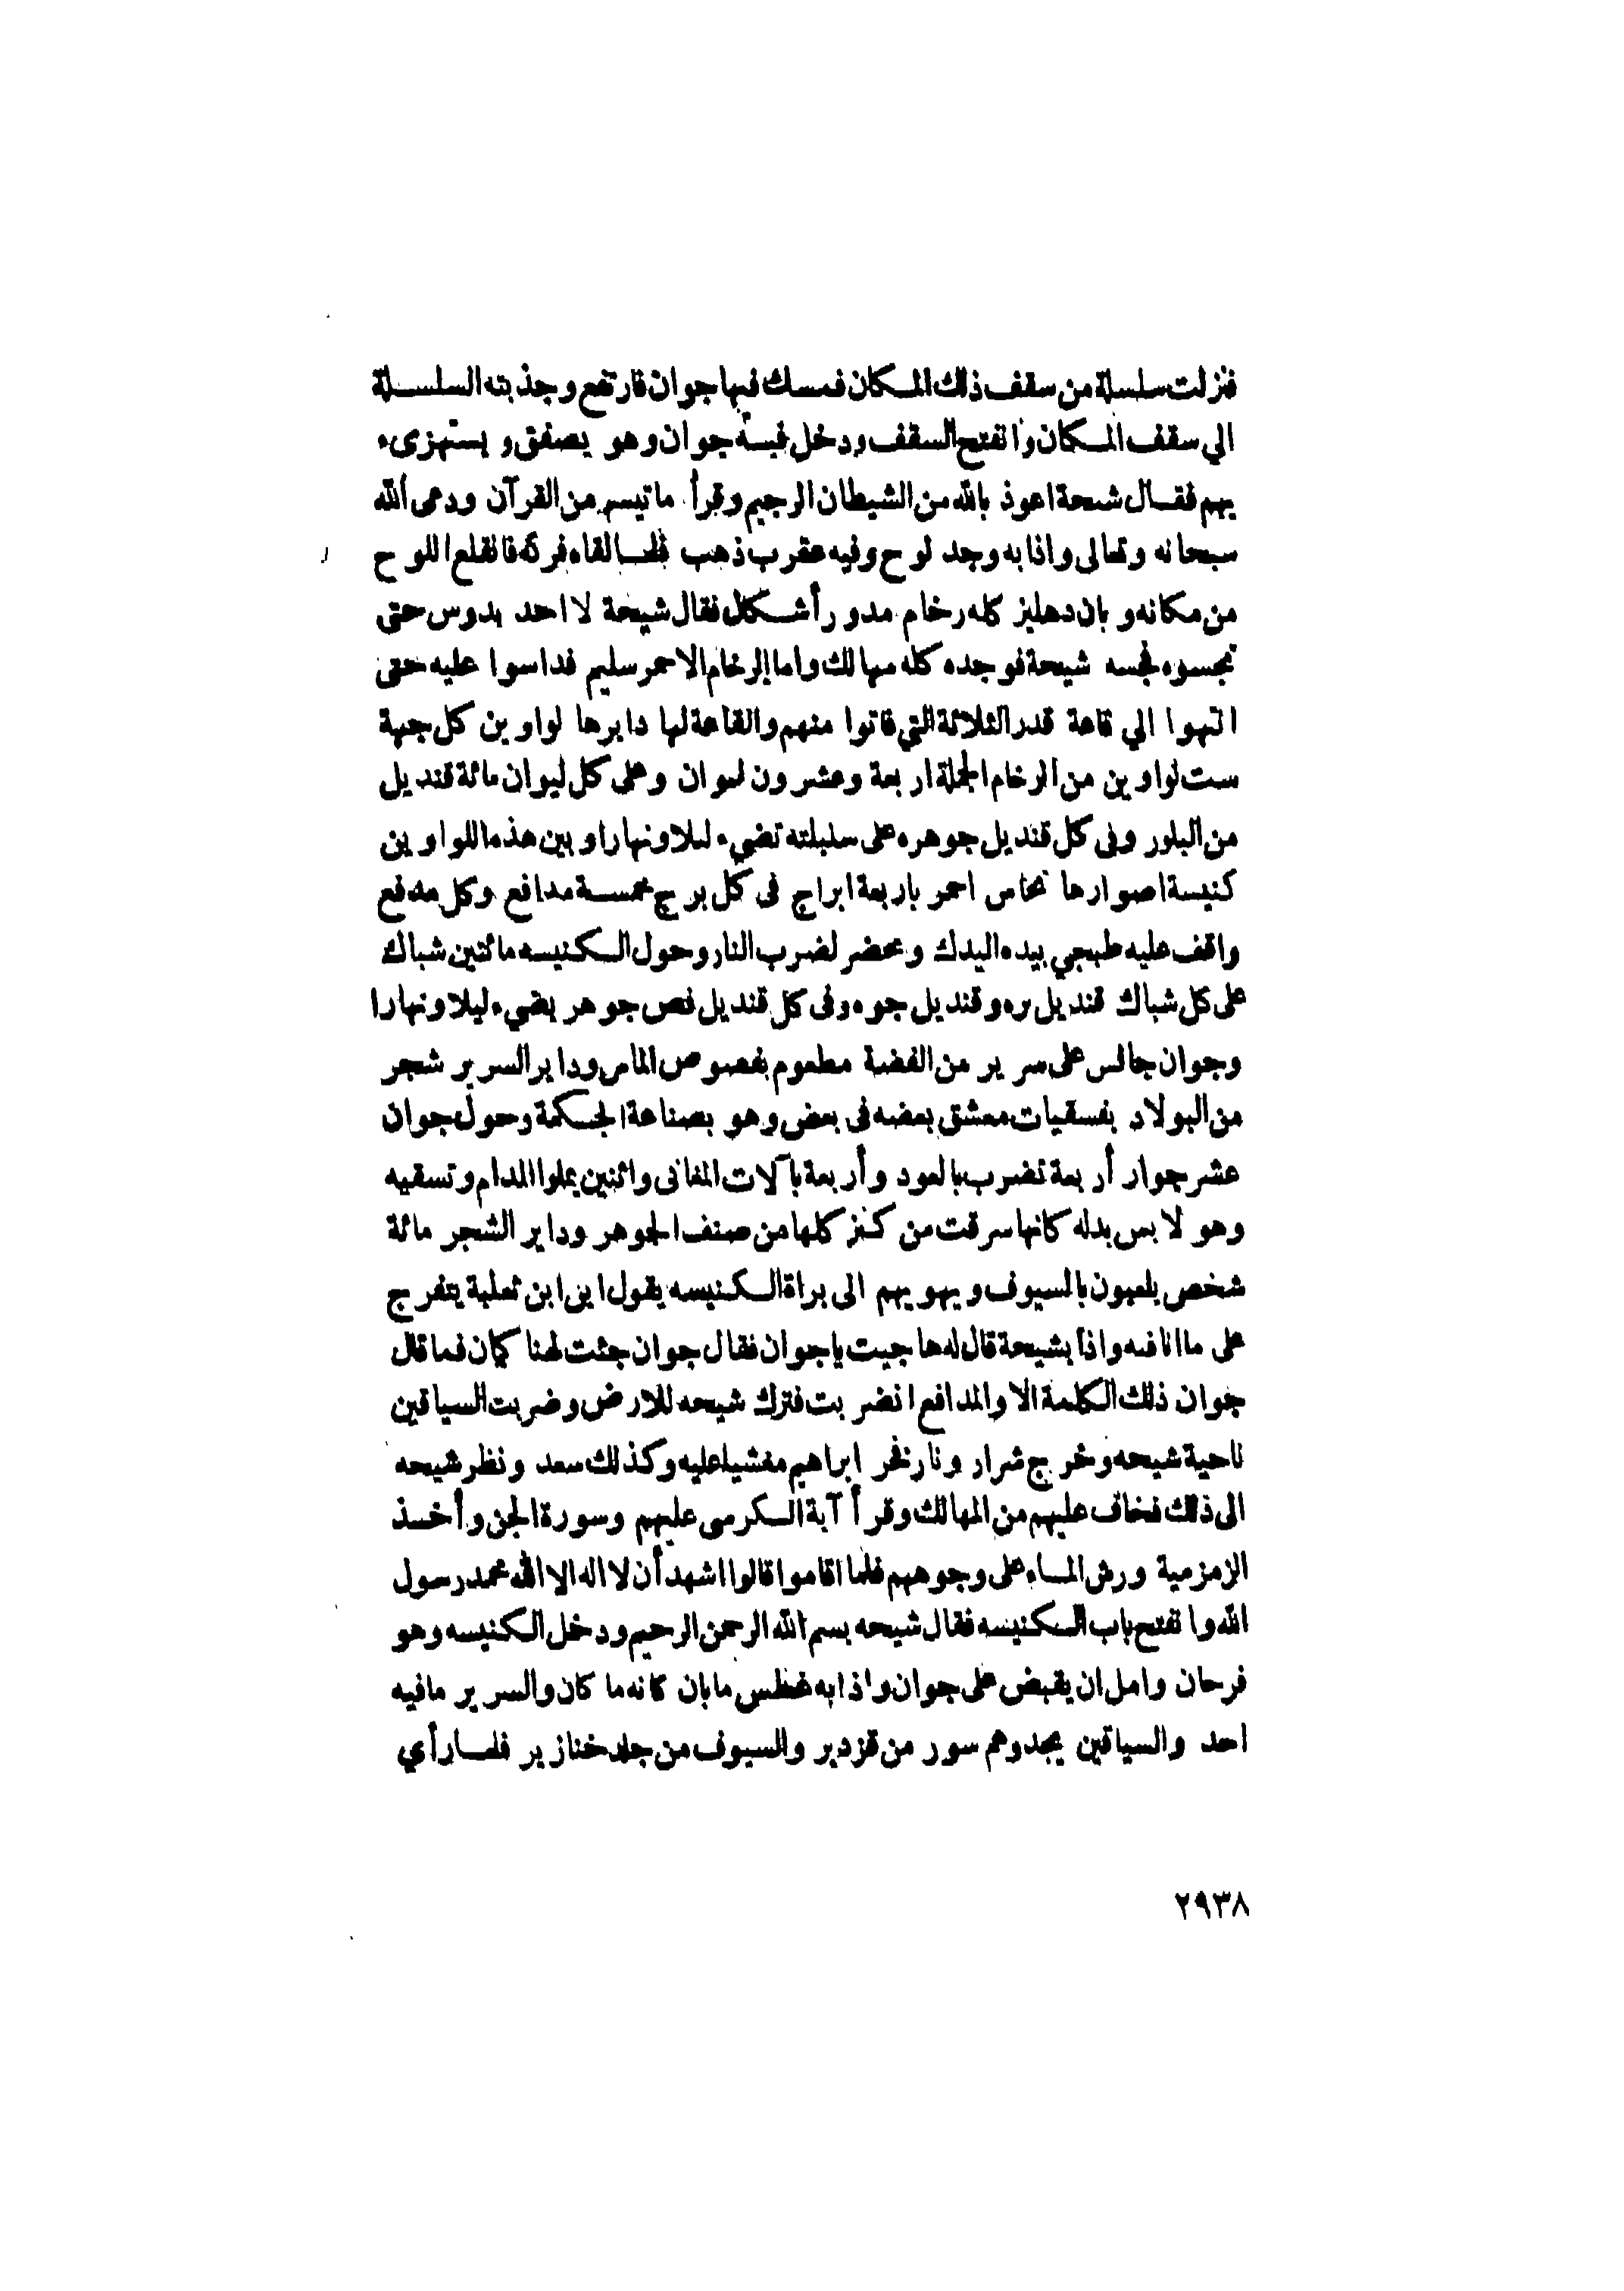 فنزلت سلسلة من سقف ذلك المكان فمسك فيها جوان فارتفع وجذبته السلسلة
الي سقف المكان وانفتح السقف ودخل فيه جوان وهو يصفق ويستهزىء
بهم فقال شيحة اعوذ بالله من الشيطان الرجيم وقرأ ما تيسر من القرآن ودعى الله
سبحانه وتعالى واذا به وجد لوح وفيه عقرب ذهب فلما لقاه فركه فانقلع اللوح
من مكانه وبان دهليز كله رخام مدور أشكال فقال شيحة لا احد يدوس حتى
نجسوه فجسه شيحة فوجده كله مهالك واما الرخام الاحمر سليم فداسوا عليه حتى
انتهوا الي قاعة قدر الثلاثة التي فاتوا منهم والقاعة لها دايرها لواوين كل جهة
ست لواوين من الرخام الجملة اربعة وعشرون ليوان وعلى كل ليوان مائة قنديل
من البلور وفى كل قنديل جوهره على سلبلته تضيء ليلا ونهارا وبين هذه اللواوين
كنيسة اصوارها نحاس احمر باربعة ابراج فى كل برج خمسة مدافع وكل مدفع
واقف عليه طبجي بيده اليدك ومحضر لضرب النار وحول الكنيسه مائتين شباك
على كل شباك قنديل بره وقنديل جوه وفى كل قنديل فص جوهر يضيء ليلا ونهارا
وجوان جالس على سرير من الفضة مطعوم بفصوص الماس وداير السرير شجر
من البولاد بفسقيات معشق بعضه فى بعض وهو بصناعة الحكمة وحول جوان
عشر جوار أربعة تضرب بالعود وأربعة بآلات المغانى واثنين يملوا المدام وتسقيه
وهو لابس بدله كانها سرقت من كنز كلها من صنف الجوهر وداير الشجر مائة
شخص يلعبون بالسيوف ويهويهم الى براة الكنيسه يقول اين ابن ثعلبة يتفرج
على ما انا فيه واذا بشيحة قال له ها جيت يا جوان فقال جوان جئت لهنا كمان فما قال
جوان ذلك الكلمة الا والمدافع انضربت فترك شيحه للارض وضربت السياقين
ناحية شيحه وخرج شرار ونار فخر ابراهيم مغشيا عليه وكذلك سعد ونظر شيحه
الى ذلك فخاف عليهم من المهالك وقرأ آية الكرسى عليهم وسورة الجن وأخذ
الزمزمية ورش الماء على وجوههم فلما اقاموا قالوا اشهد أن لا اله الا الله محمد رسول
الله وانفتح باب الكنيسه فقال شيحه بسم الله الرحمن الرحيم ودخل الكنيسه وهو
فرحان وامل ان يقبض على جوان واذا به غطس ما بان كانه ما كان والسرير ما فيه
احد والسياقين يجدوهم سور من قزدير والسيوف من جلد خنازير فلما رأي
٢٩٣٨